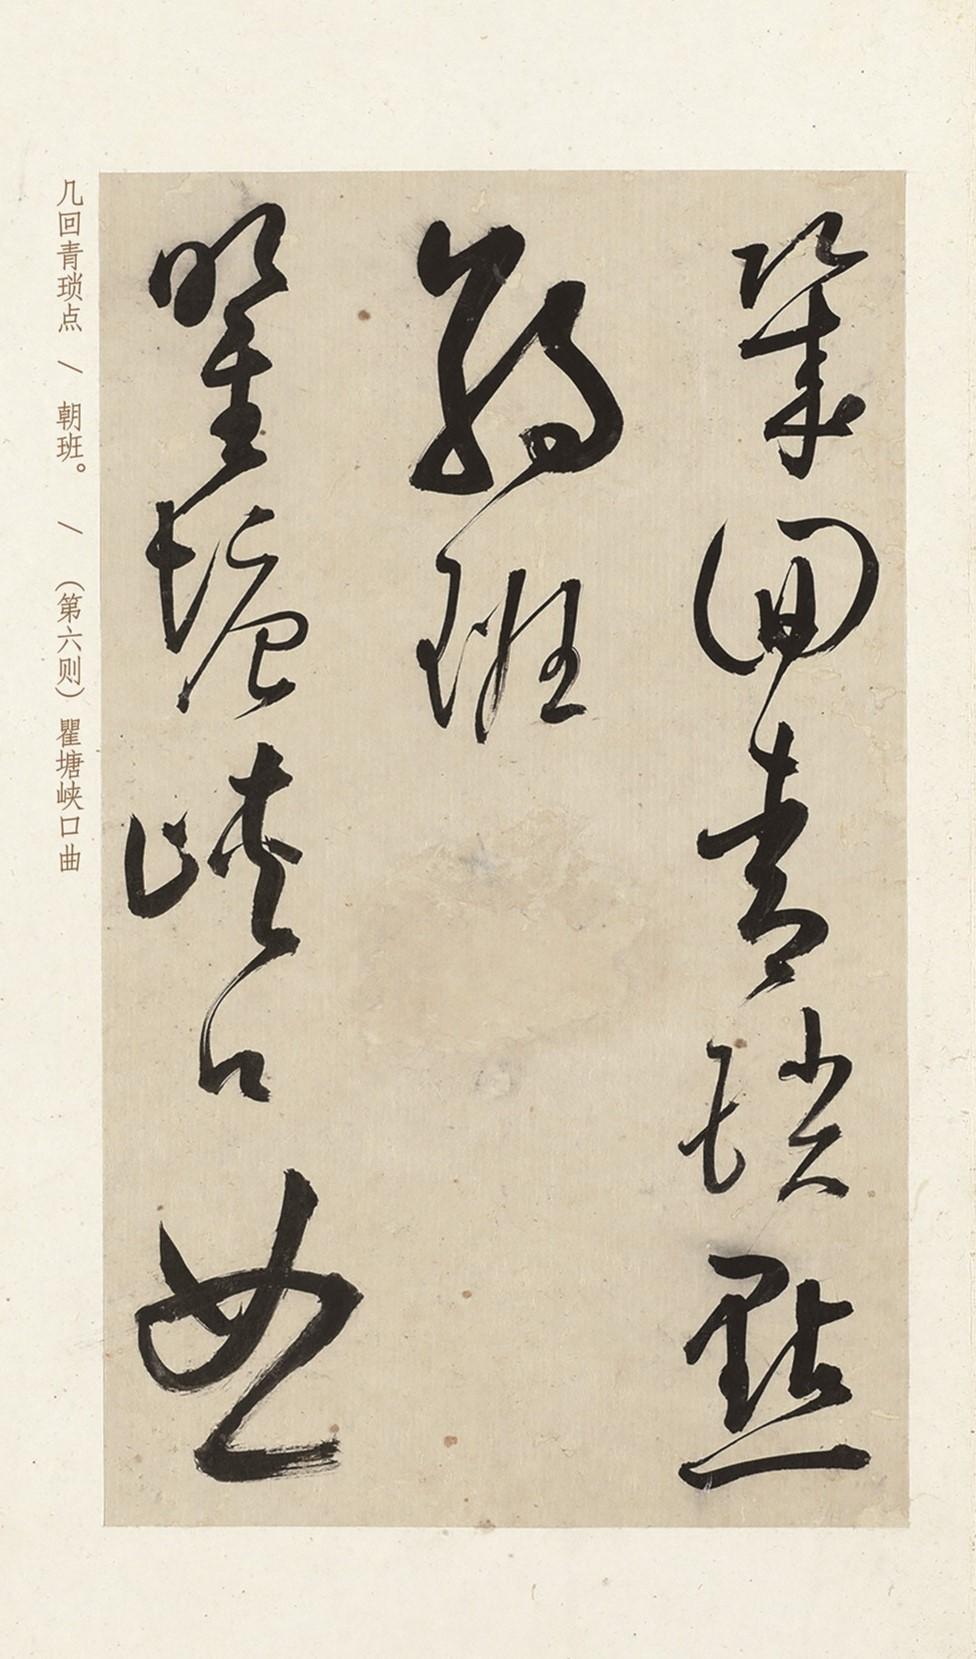 幾回青瑣點
朝班
瞿塘峽口曲
几回青琐点 \ 朝班。 \ （第六则）瞿塘峡口曲